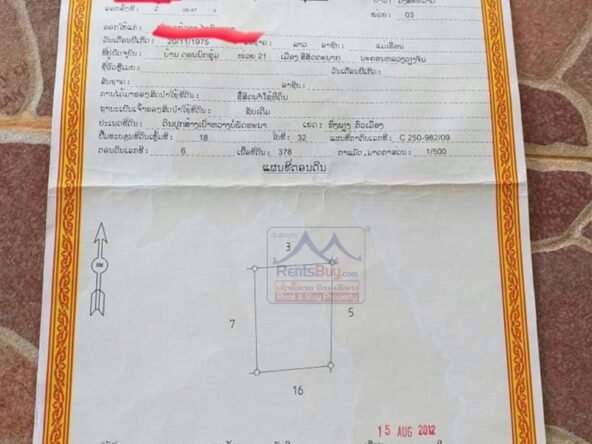 ອອກຄັ້ງທີ : 2
ໜ່ວຍ : 03
ອອກໃຫ້ແກ່ :
ວັນເດືອນປີເກີດ : 20/11/1975 ລາວ ອາຊີບ : ແມ່ເຮືອນ
ທີ່ຢູ່ປັດຈຸບັນ : ບ້ານ ດອນນົກຂຸ້ມ ໜ່ວຍ 21 ເມືອງ ສີສັດຕະນາກ ນະຄອນຫລວງວຽງຈັນ
ຊື່ຜົວຫຼືເມຍ : ວັນເດືອນປີເກີດ :
ສັນຊາດ : ອາຊີບ :
ການໄດ້ມາຂອງສິດນຳໃຊ້ທີ່ດິນ : ຊື້ສິດນຳໃຊ້ທີ່ດິນ
ຖານະເປັນເຈົ້າຂອງສິດນຳໃຊ້ທີ່ດິນ : ຊັບເດີມ
ປະເພດທີ່ດິນ : ດິນປຸກສ້າງເປົ່າຫວ່າງບໍ່ພັດທະນາ ເຂດ : ທົ່ງພຽງ ຕົວເມືອງ
ປຶ້ມທະບຽນທີ່ດິນເຫຼັ້ມທີ : 18 ໃບທີ : 32 ແຜນທີ່ຕາດິນເລກທີ : C 250-982/09
ຕອນດິນເລກທີ : 6 ເນື້ອທີ່ດິນ : 378 ຕາແມັດ, ມາດຕາສ່ວນ : 1/500
ແຜນທີ່ຕອນດິນ
3
RentsBuy.com
Rent & Buy Property
7
5
16
15 AUG 2012